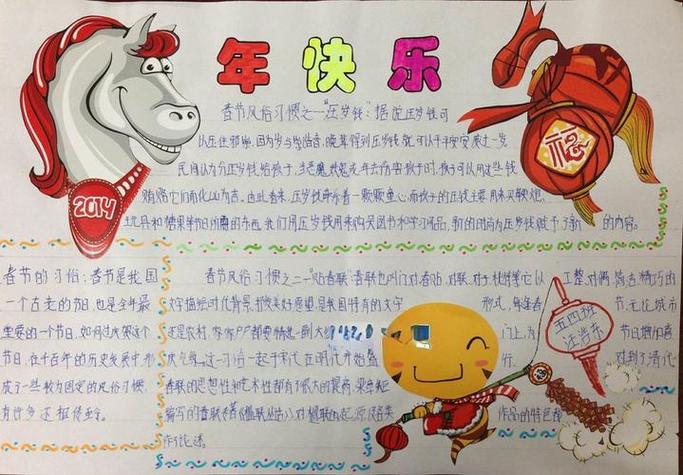 年快乐
春节风俗习惯之一"压岁钱":据说压岁钱可
以压住邪祟,因为岁与祟谐音,晚辈得到压岁钱就可以平平安安度过一岁
民间认为分压岁钱给孩子,当恶魔妖鬼或年去伤害孩子时,孩子可以用这些钱
贿赂它们而化凶为吉。由此看来,压岁钱牵系着一颗颗童心,而孩子的压岁钱主要用来买鞭炮,
玩具和糖果等节日所需的东西。我们用压岁钱用来购买图书和学习用品,新的时尚为压岁钱赋予了新的内容。
2014
福
春节的习俗:春节是我国
一个古老的节日,也是全年最
重要的一个节日,如何过庆贺这个
节日,在千百年的历史发展中,形
成了一些较为固定的风俗习惯,
有许多还相传至今。
春节风俗习惯之二"贴春联"春联也叫门对春贴,对联,对子,桃符等,它以工整,对偶,简洁,精巧的
文字描绘时代背景,抒发美好愿望,是我国特有的文字形式,每逢春节,无论城市
还是农村,家家户户都要精选一副大红门上,为节日增加喜
庆气氛。这一习俗一起于宋代,在明代开始盛行。到了清代
春联的思想性和艺术性都有了很大的提高,梁章矩
编写的春联专著《槛联丛话》对楹联的起源及各类作品的特色都
作了论述
五四班
汪浩东